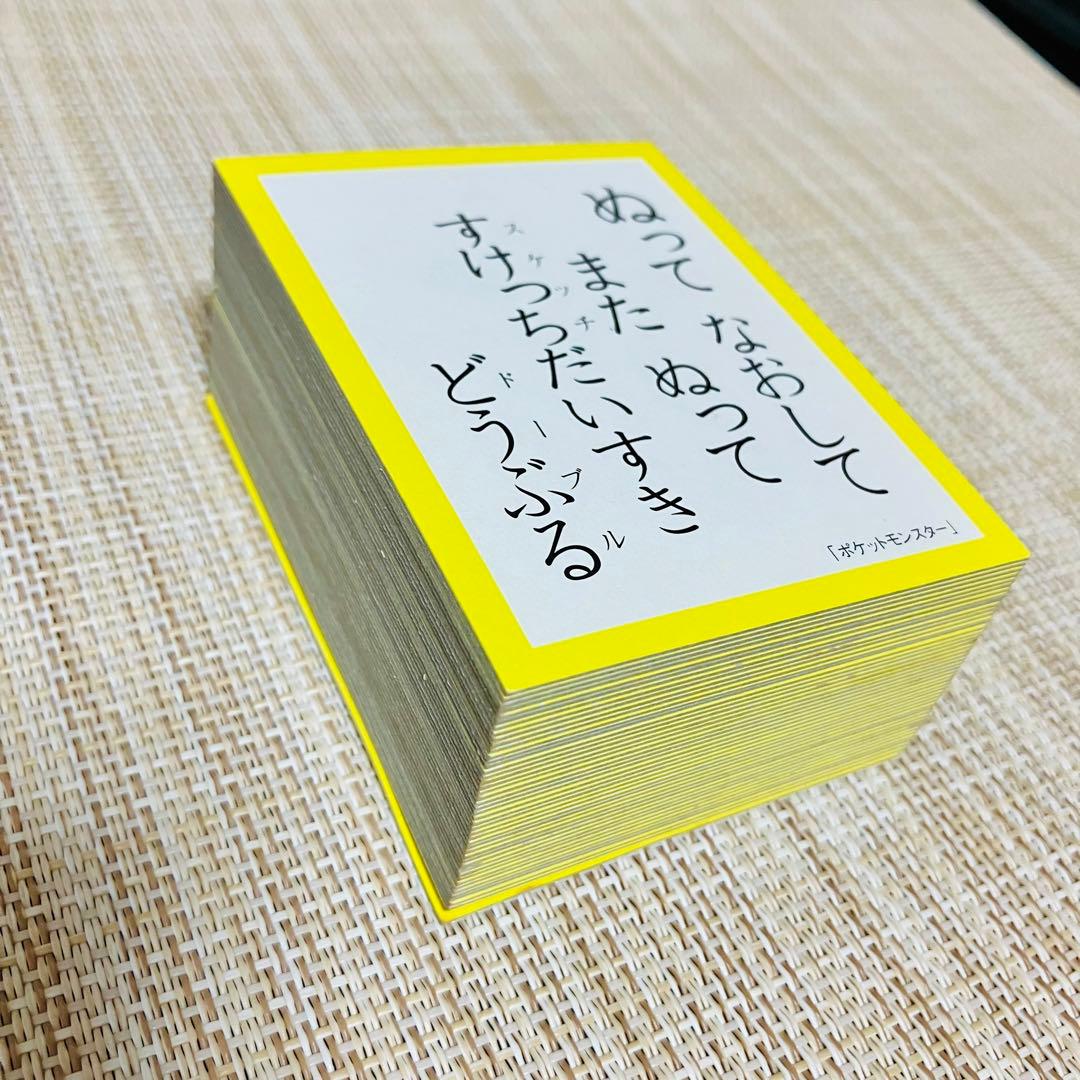 ぬって なおして
また ぬって
すけっちだいすき
スケッチ
どうぶる
ドーブル
「ポケットモンスター」